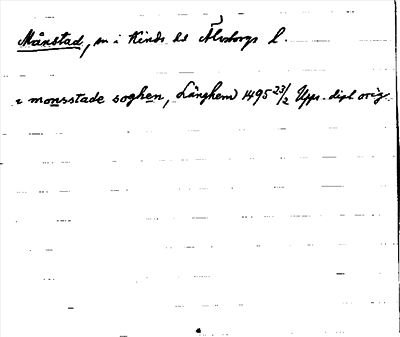 Månstad, sn i Kinds hd Älvsborgs l.
i monsstade soghen, Länghem 1495 23/2 Upps. dipl orig